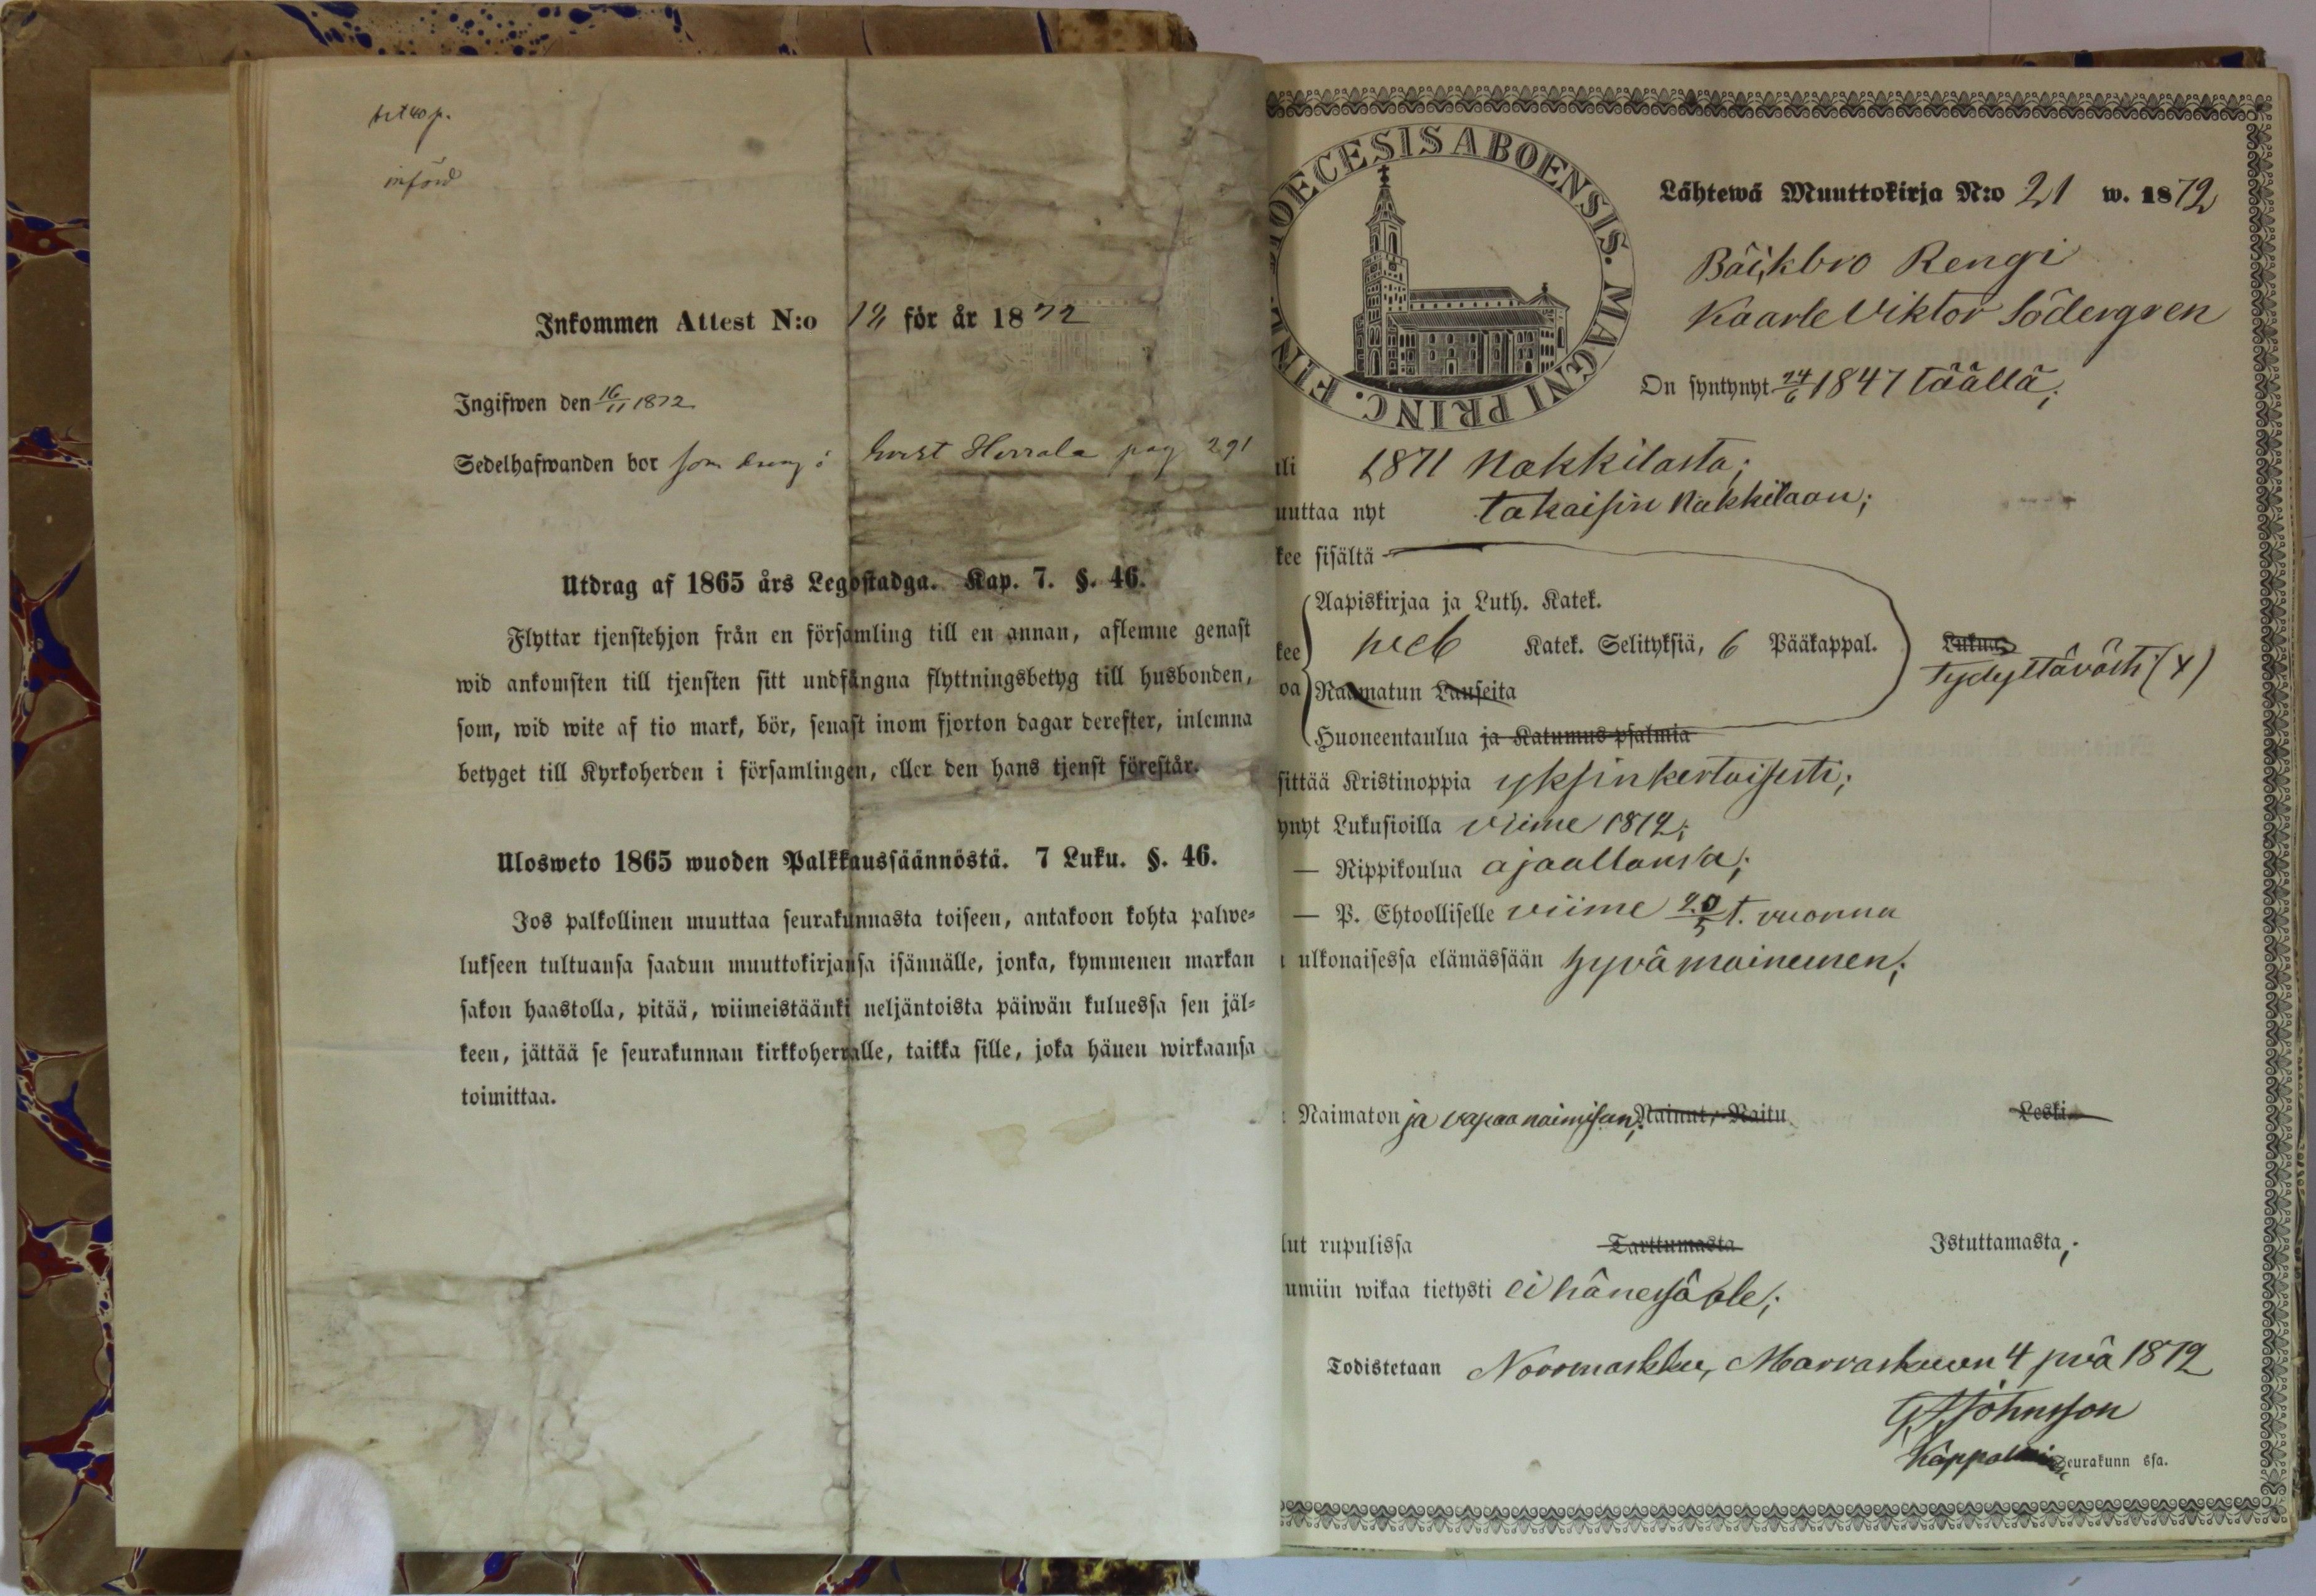 införd
Inkommen Attest N:o 12 för år 1872
Ingifwen den 16/11 1872
Sedelhafwanden bor som dreng i Herrala pag 291
Utdrag af 1865 års Legostadga. Kap. 7. §. 46.
Flyttar tjenstehjon från en församling till en annan, aflemne genast
wid ankomsten till tjensten sitt undfångna flyttningsbetyg till husbonden,
som, wid wite af tio mark, bör, senast inom fjorton dagar derefter, inlemna
betyget till Kyrkoherden i församlingen, eller den hans tjenst förestår.
Ulosweto 1865 wuoden Palkkaussäännöstä. 7 Luku. §. 46.
Jos palkollinen muuttaa seurakunnasta toiseen, antakoon kohta palwe-
lukseen tultuansa saadun muuttokirjansa isännälle, jonka, kymmenen markan
sakon haastolla, pitää, wiimeistäänki neljäntoista päiwän kuluessa sen jäl-
keen, jättää se seurakunnan kirkkoherralle, taikka sille, joka hänen wirkaansa
toimittaa.
OECESIS ABOENSIS. MAGNI PRINC. FIN
Lähtewä Muuttokirja N:o 21 w. 1872
Rengi
Kaarle Viktor Södergren
On syntynyt 24/6 1847 täällä;
uli 1871 Nakkilasta;
uuttaa nyt takaisin Nakkilaan;
kee sisältä
Aapiskirjaa ja Luth. Katek.
kee Katek. Selityksiä, 6 Pääkappal. Lukua
tydyttävästi (x)
oa Raamatun Lauseita
Huoneentaulua ja Katumus-psalmia
sittää Kristinoppia yksinkertaisesti;
ynyt Lukusioilla viime 1872;
— Rippikoulua ajaallansa;
— P. Ehtoolliselle viime 20/5 t. vuonna
ulkonaisessa elämässään hyvämaineinen;
Naimaton ja vapaa naimisan; Nainut, Naitu Leski
lut rupulissa Tarttumasta Istuttamasta;
umiin wikaa tietysti ei hänessä ole;
Todistetaan Noormarkku, Marraskuun 4 pvä 1872
Johnsson
Kappalainen Seurakunn ssa.